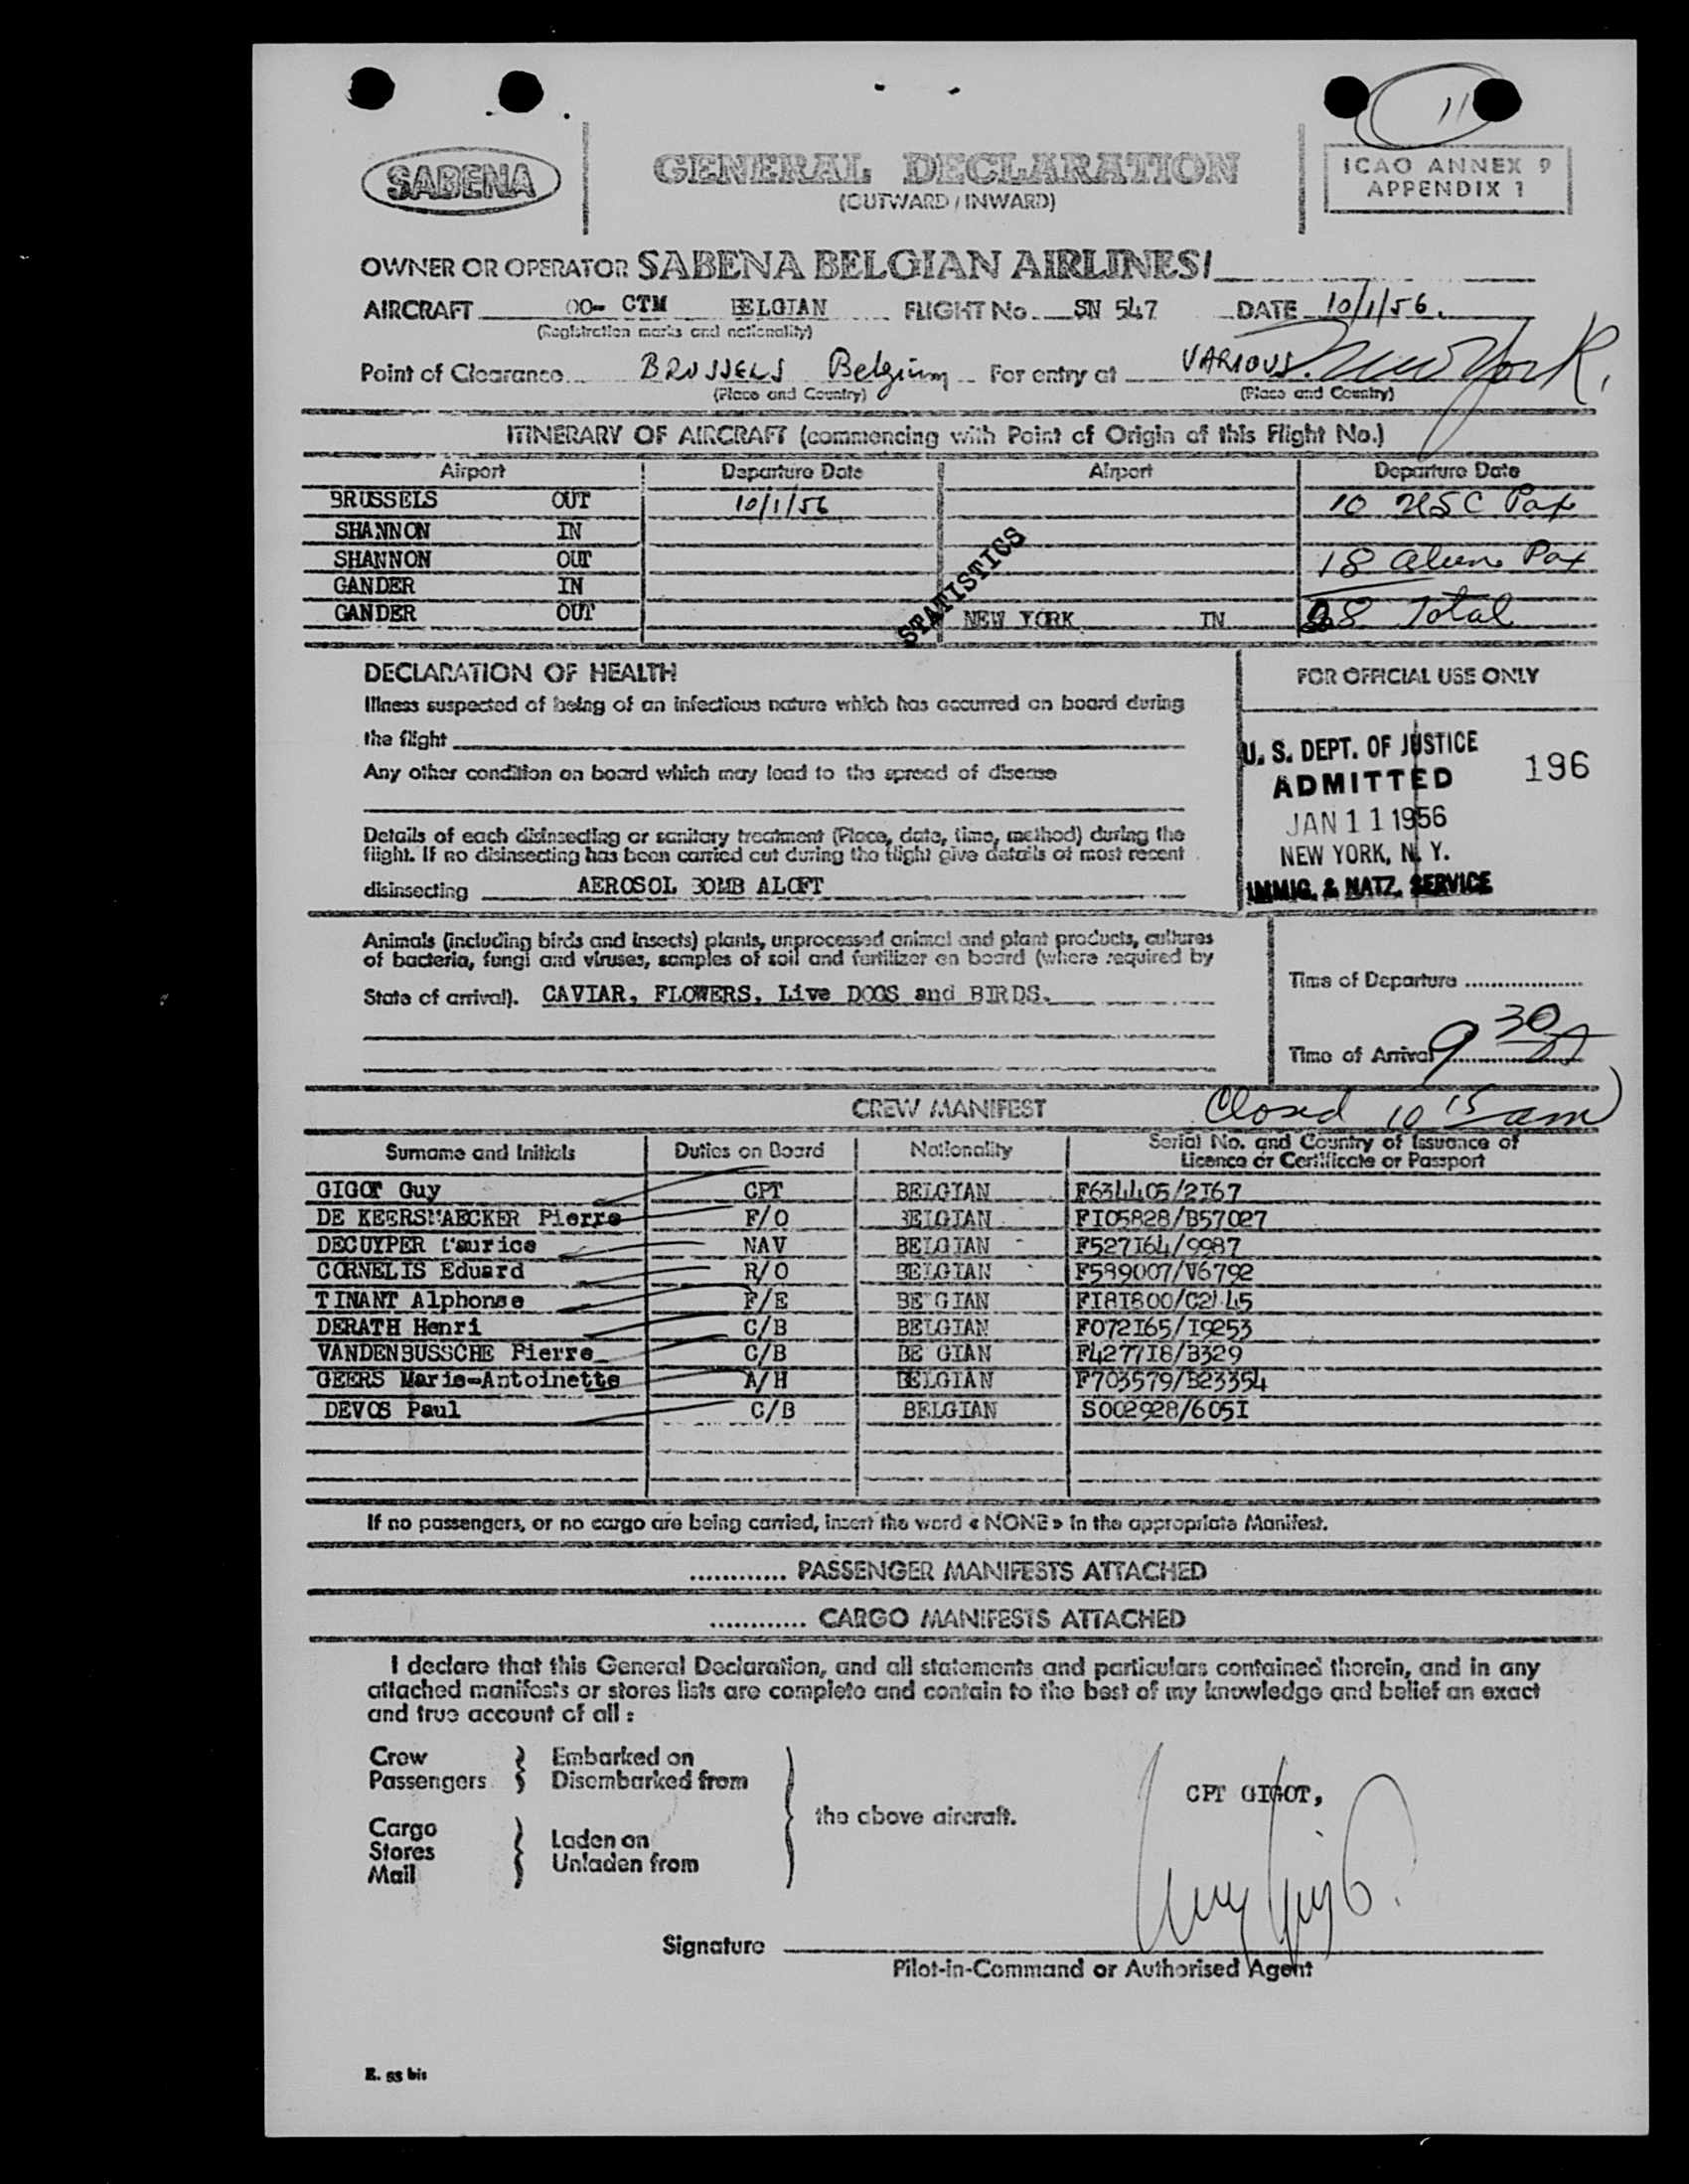 11
SABENA
GENERAL DECLARATION
(OUTWARD / INWARD)
ICAO ANNEX 9
APPENDIX 1
OWNER OR OPERATOR SABENA BELGIAN AIRLINES
AIRCRAFT OO- CTM BELGIAN FLIGHT No. SN 547 DATE 10/1/56.
(Registration marks and nationality)
Point of Clearance BRUSSELS Belgium For entry at VARIOUS. New York.
(Place and Country) (Place and Country)
ITINERARY OF AIRCRAFT (commencing with Point of Origin of this Flight No.)
Airport Departure Date Airport Departure Date
BRUSSELS OUT 10/1/56 10 USC Pax
SHANNON IN
SHANNON OUT 18 alien Pax
GANDER IN
GANDER OUT NEW YORK IN 28 Total
STATISTICS
DECLARATION OF HEALTH
Illness suspected of being of an infectious nature which has occurred on board during
the flight
Any other condition on board which may lead to the spread of disease
Details of each disinsecting or sanitary treatment (Place, date, time, method) during the
flight. If no disinsecting has been carried out during the flight give details of most recent
disinsecting AEROSOL BOMB ALOFT
FOR OFFICIAL USE ONLY
U. S. DEPT. OF JUSTICE
ADMITTED 196
JAN 11 1956
NEW YORK, N. Y.
IMMIG. & NATZ. SERVICE
Animals (including birds and insects) plants, unprocessed animal and plant products, cultures
of bacteria, fungi and viruses, samples of soil and fertilizer on board (where required by
State of arrival). CAVIAR, FLOWERS, Live DOGS and BIRDS.
Time of Departure
Time of Arrival 9 30 A
Closed 10 15 am
CREW MANIFEST
Surname and Initials Duties on Board Nationality Serial No. and Country of Issuance of
Licence or Certificate or Passport
GIGOT Guy CPT BELGIAN F634405/2I67
DE KEERSMAECKER Pierre F/O BELGIAN FI05828/B57027
DECUYPER Maurice NAV BELGIAN F527I64/9987
CORNELIS Eduard R/O BELGIAN F589007/V6792
TINANT Alphonse F/E BE GIAN
DERATH Henri C/B BELGIAN F072I65/I9253
VANDENBUSSCHE Pierre C/B BE GIAN F4277I8/B329
GEERS Marie-Antoinette A/H BELGIAN F703579/B23354
DEVOS Paul C/B BELGIAN S002928/605I
If no passengers, or no cargo are being carried, insert the word « NONE » in the appropriate Manifest.
............ PASSENGER MANIFESTS ATTACHED
............ CARGO MANIFESTS ATTACHED
I declare that this General Declaration, and all statements and particulars contained therein, and in any
attached manifests or stores lists are complete and contain to the best of my knowledge and belief an exact
and true account of all :
Crew Embarked on
Passengers Disembarked from
the above aircraft.
Cargo
Stores Laden on
Mail Unladen from
CPT GIGOT,
Signature
Pilot-in-Command or Authorised Agent
E. 53 bis